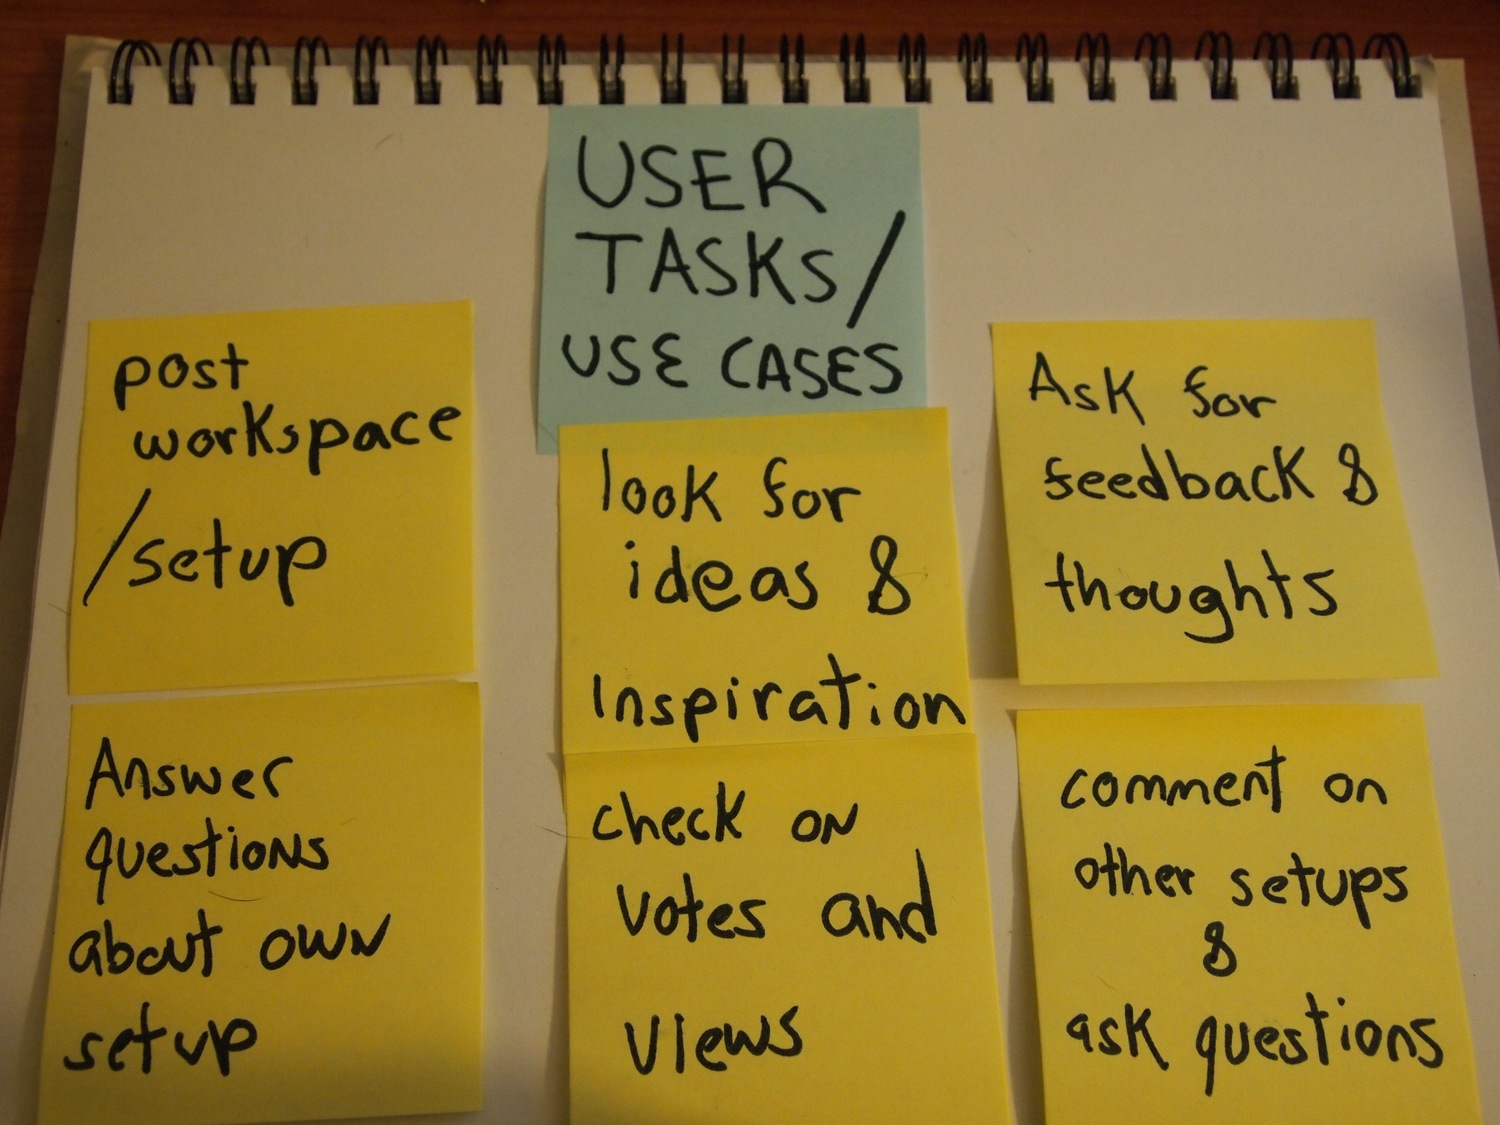 USER
TASKS/
USE CASES
post
workspace
/setup
look for
ideas &
Inspiration
Ask for
feedback &
thoughts
Answer
questions
about own
setup
check on
votes and
views
comment on
other setups
&
ask questions